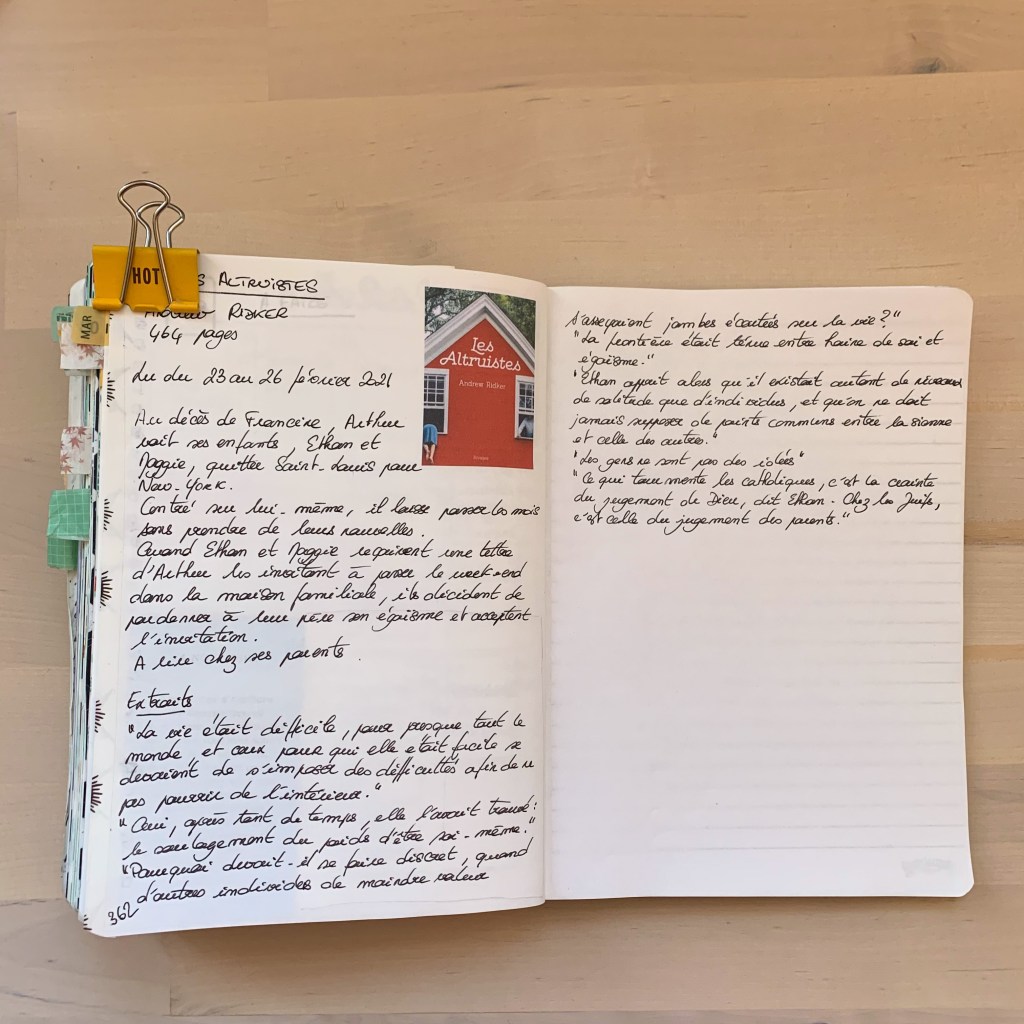 HOT
S ALTRUISTES
ANDREW RIDKER
464 pages
MAR
Lu du 23 au 26 février 2021
Les
Altruistes
Andrew Ridker
Au décès de Francine, Arthur
voit ses enfants, Ethan et
Maggie, quitter Saint-Louis pour
New-York.
Centré sur lui-même, il laisse passer les mois
sans prendre de leurs nouvelles.
Quand Ethan et Maggie reçoivent une lettre
d'Arthur les invitant à passer le week-end
dans la maison familiale, ils décident de
pardonner à leur père son égoïsme et acceptent
l'invitation.
A lire chez ses parents.
Extraits
"La vie était difficile, pour presque tout le
monde, et ceux pour qui elle était facile se
devaient de s'imposer des difficultés afin de ne
pas pourrir de l'intérieur."
"Oui, après tant de temps, elle l'avait trouvé:
le soulagement du poids d'être soi-même."
"Pourquoi devait-il se faire discret, quand
d'autres individus de moindre valeur
362
s'asseyaient jambes écartées sur la vie?"
"La frontière était ténue entre haine de soi et
égoïsme."
"Ethan apprit alors qu'il existait autant de niveaux
de solitude que d'individus, et qu'on ne doit
jamais supposer de points communs entre la sienne
et celle des autres."
"Les gens ne sont pas des idées"
"Ce qui tourmente les catholiques, c'est la crainte
du jugement de Dieu, dit Ethan. Chez les Juifs,
c'est celle du jugement des parents."